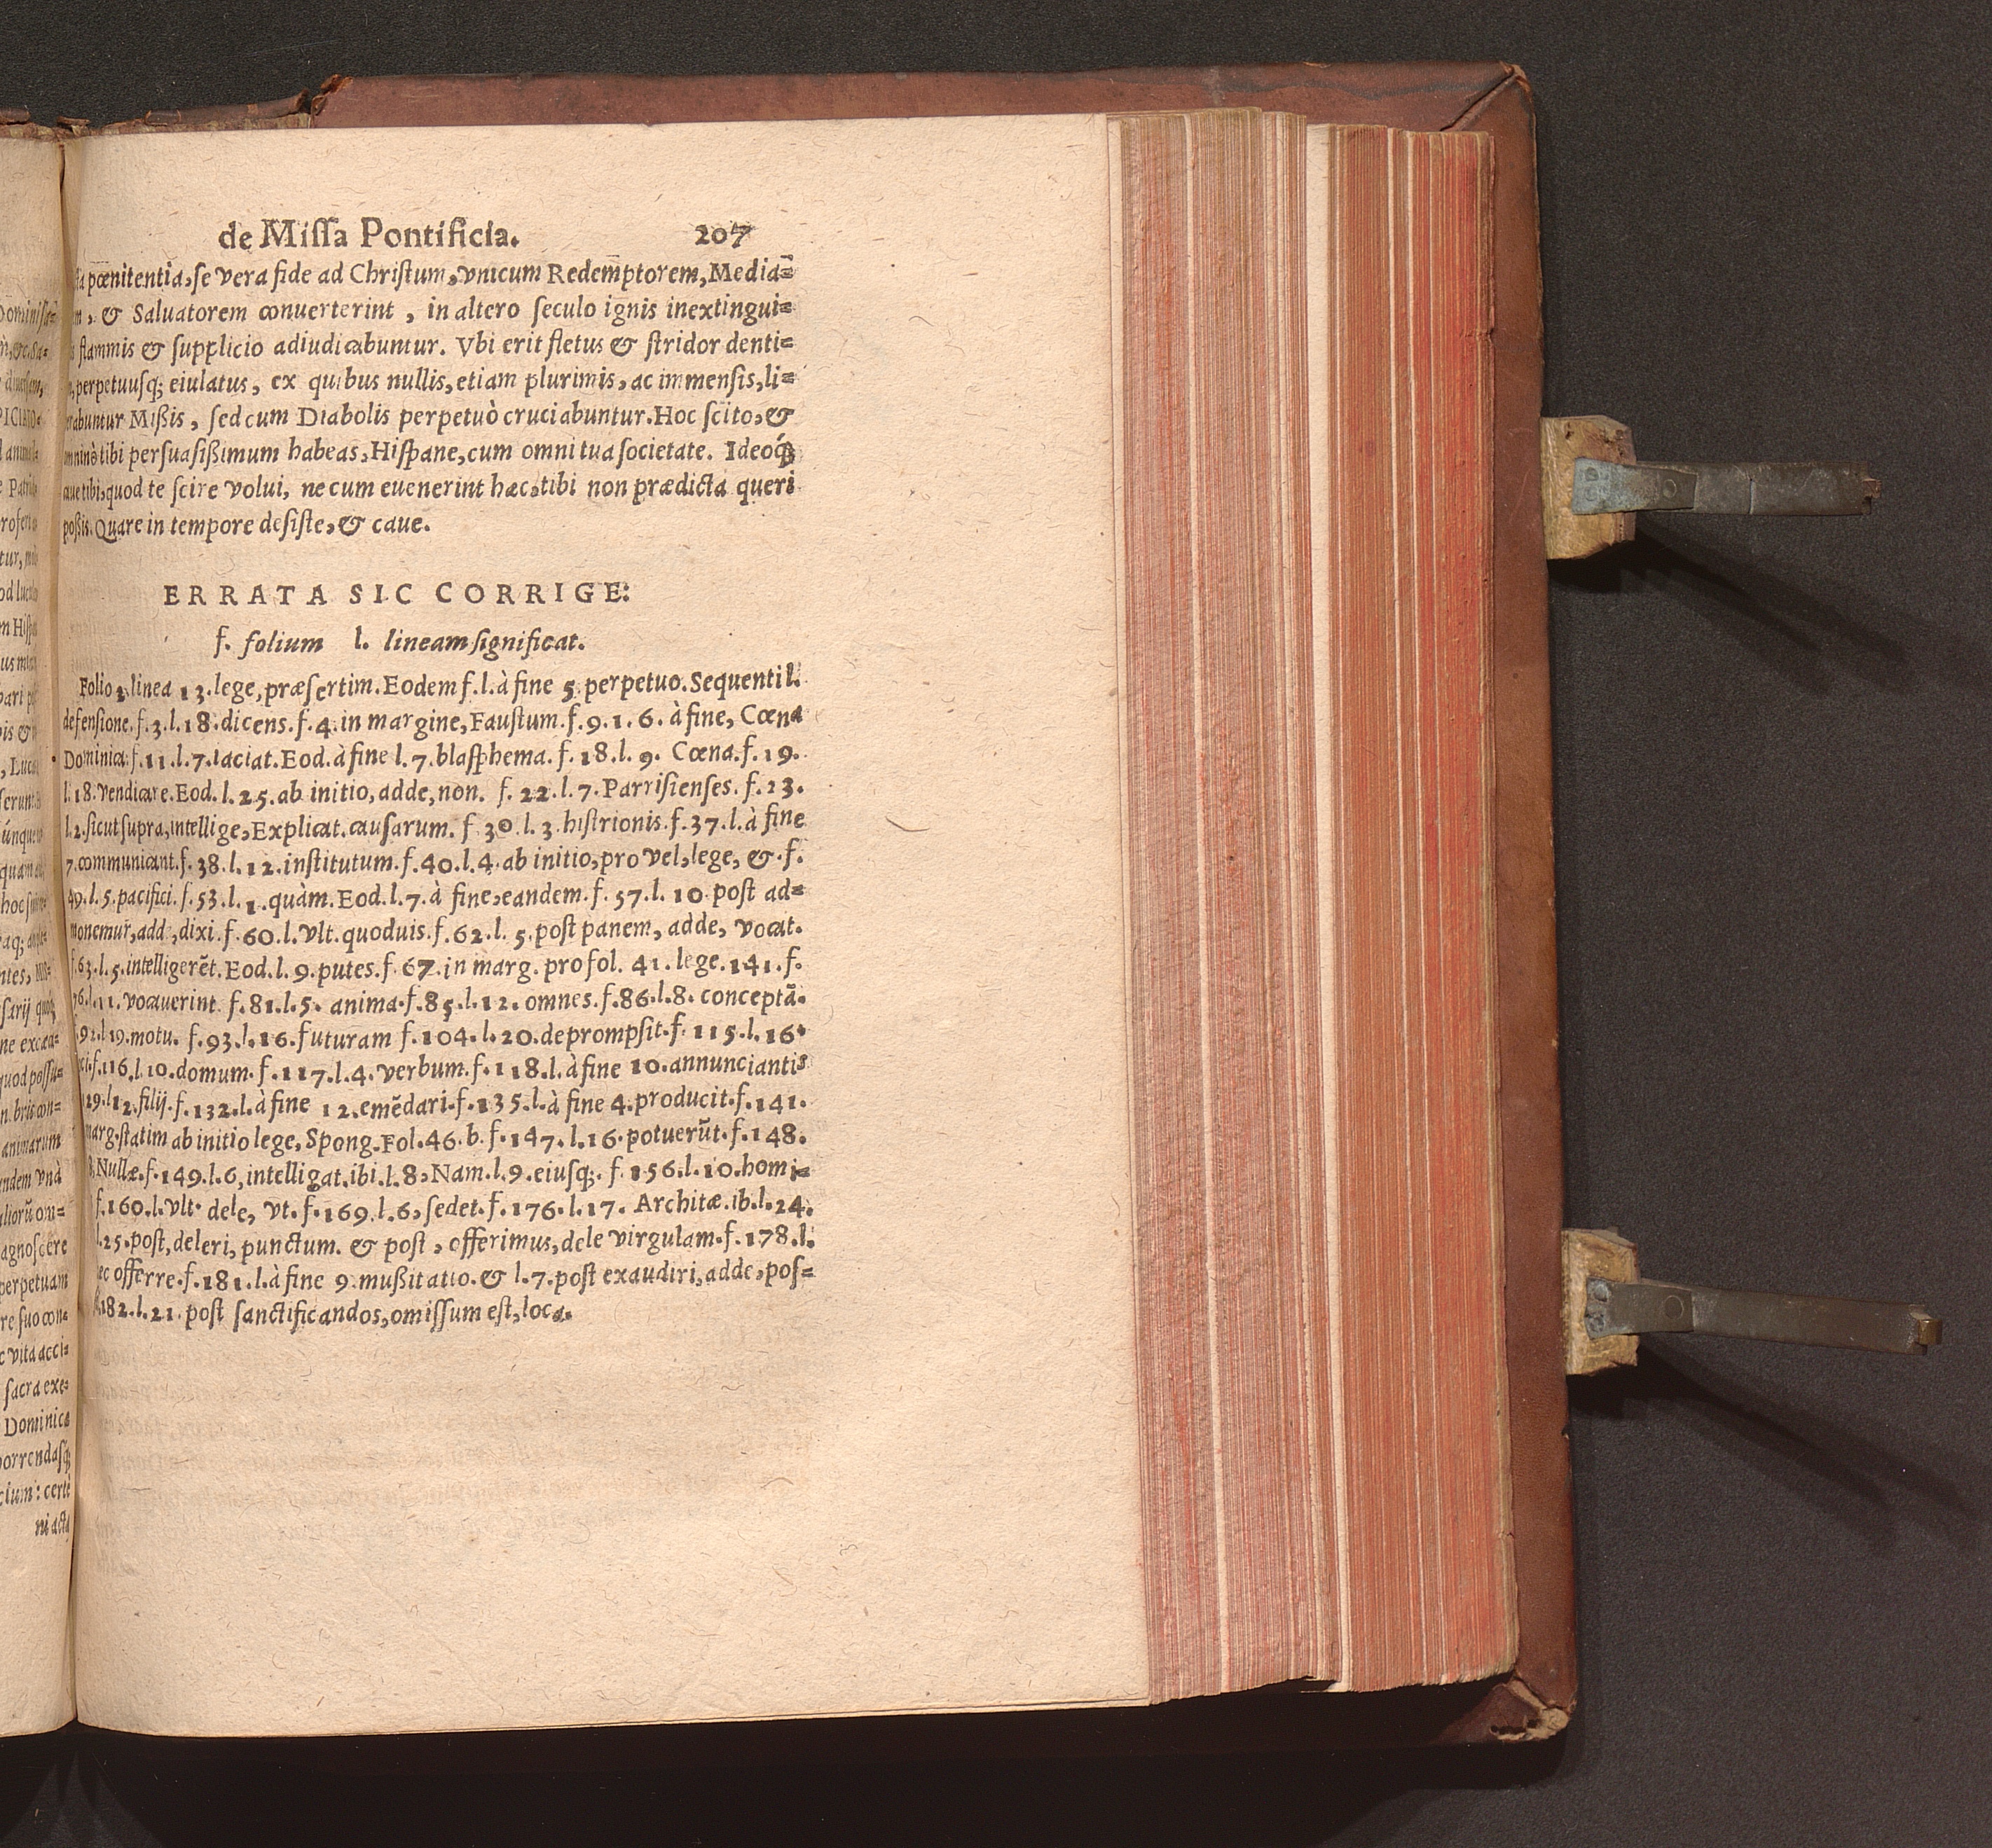 de Miſſa Pontificia. 207
pœnitentia, ſe vera fide ad Chriſtum, vnicum Redemptorem, Media=
, & Saluatorem conuerterint, in altero ſeculo ignis inextingui=
flammis & ſupplicio adiudicabuntur. Vbi erit fletus & ſtridor denti=
, perpetuuſq; eiulatus, ex quibus nullis, etiam plurimis, ac immenſis, li=
abuntur Mißis, ſed cum Diabolis perpetuò cruciabuntur. Hoc ſcito, &
omninò tibi perſuaſißimum habeas, Hiſpane, cum omni tua ſocietate. Ideóq;
caue tibi, quod te ſcire volui, ne cum euenerint hæc, tibi non prædicta queri
poßis. Quare in tempore deſiſte, & caue.
ERRATA SIC CORRIGE:
f. folium l. lineam ſignificat.
Folio 2. linea 13. lege, præſertim. Eodem f. l. à fine 5. perpetuo. Sequenti l.
defenſione. f. 3. l. 18. dicens. f. 4. in margine, Fauſtum. f. 9. 1. 6. à fine, Cœna
Dominica. f. 11. l. 7. iaciat. Eod. à fine l. 7. blaſphema. f. 18. l. 9. Cœna. f. 19.
l. 18. vendicare. Eod. l. 25. ab initio, adde, non. f. 22. l. 7. Parriſienſes. f. 23.
l. 2. ſicut ſupra, intellige, Explicat. cauſarum. f. 30. l. 3. hiſtrionis. f. 37. l. à fine
7. communicant. f. 38. l. 12. inſtitutum. f. 40. l. 4. ab initio, pro vel, lege, &. f.
49. l. 5. pacifici. f. 53. l. 1. quàm. Eod. l. 7. à fine, eandem. f. 57. l. 10. poſt ad=
monemur, adde, dixi. f. 60. l. vlt. quoduis. f. 62. l. 5. poſt panem, adde, vocat.
f. 63. l. 5. intelligerẽt. Eod. l. 9. putes. f. 67. in marg. pro fol. 41. lege. 141. f.
76. l. 11. vocauerint. f. 81. l. 5. anima. f. 85. l. 12. omnes. f. 86. l. 8. conceptã.
f. 92. l. 19. motu. f. 93. l. 16. futuram f. 104. l. 20. depromſit. f. 115. l. 16.
f. 116. l. 10. domum. f. 117. l. 4. verbum. f. 118. l. à fine 10. annunciantis
129. l. 12. filij. f. 132. l. à fine 12. emẽdari. f. 135. l. à fine 4. producit. f. 141.
marg. ſtatim ab initio lege, Spong. Fol. 46. b. f. 147. l. 16. potuerũt. f. 148.
8. Nullæ. f. 149. l. 6, intelligat. ibi. l. 8, Nam. l. 9. eiuſq;. f. 156. l. 10. homi=
f. 160. l. vlt. dele, vt. f. 169. l. 6, ſedet. f. 176. l. 17. Architæ. ib. l. 24.
l. 25. poſt, deleri, punctum. & poſt, offerimus, dele virgulam. f. 178. l.
ec offerre. f. 181. l. à fine 9. mußitatio. & l. 7. poſt exaudiri, adde, poſ=
f. 182. l. 21. poſt ſanctificandos, omiſſum eſt, loca.